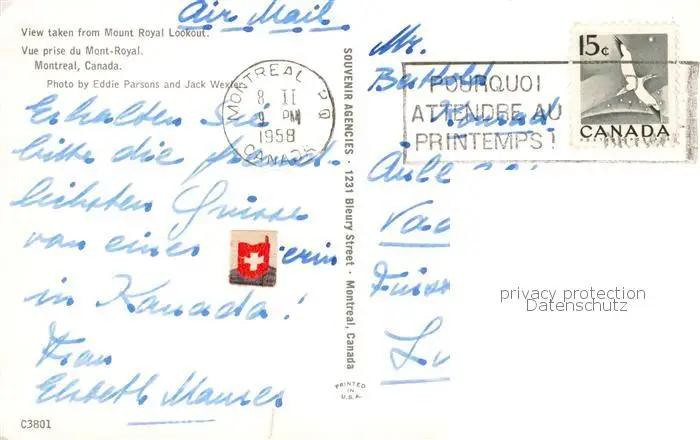 Air Mail
View taken from Mount Royal Lookout.
Vue prise du Mont-Royal.
Montreal, Canada.
Photo by Eddie Parsons and Jack Wexler
Erhalten Sie
bitte die freund-
lichsten Grüsse
von einer erin
in Kanada!
Frau
Elsbeth Maurer
C3801
MONTREAL P Q
8 II
9 PM
1958
CANADA
SOUVENIR AGENCIES · 1231 Bleury Street · Montreal, Canada
PRINTED
IN
U.S.A.
POURQUOI
ATTENDRE AU
PRINTEMPS!
15c
CANADA
Mr.
Berthold
Vad
Lu
privacy protection
Datenschutz